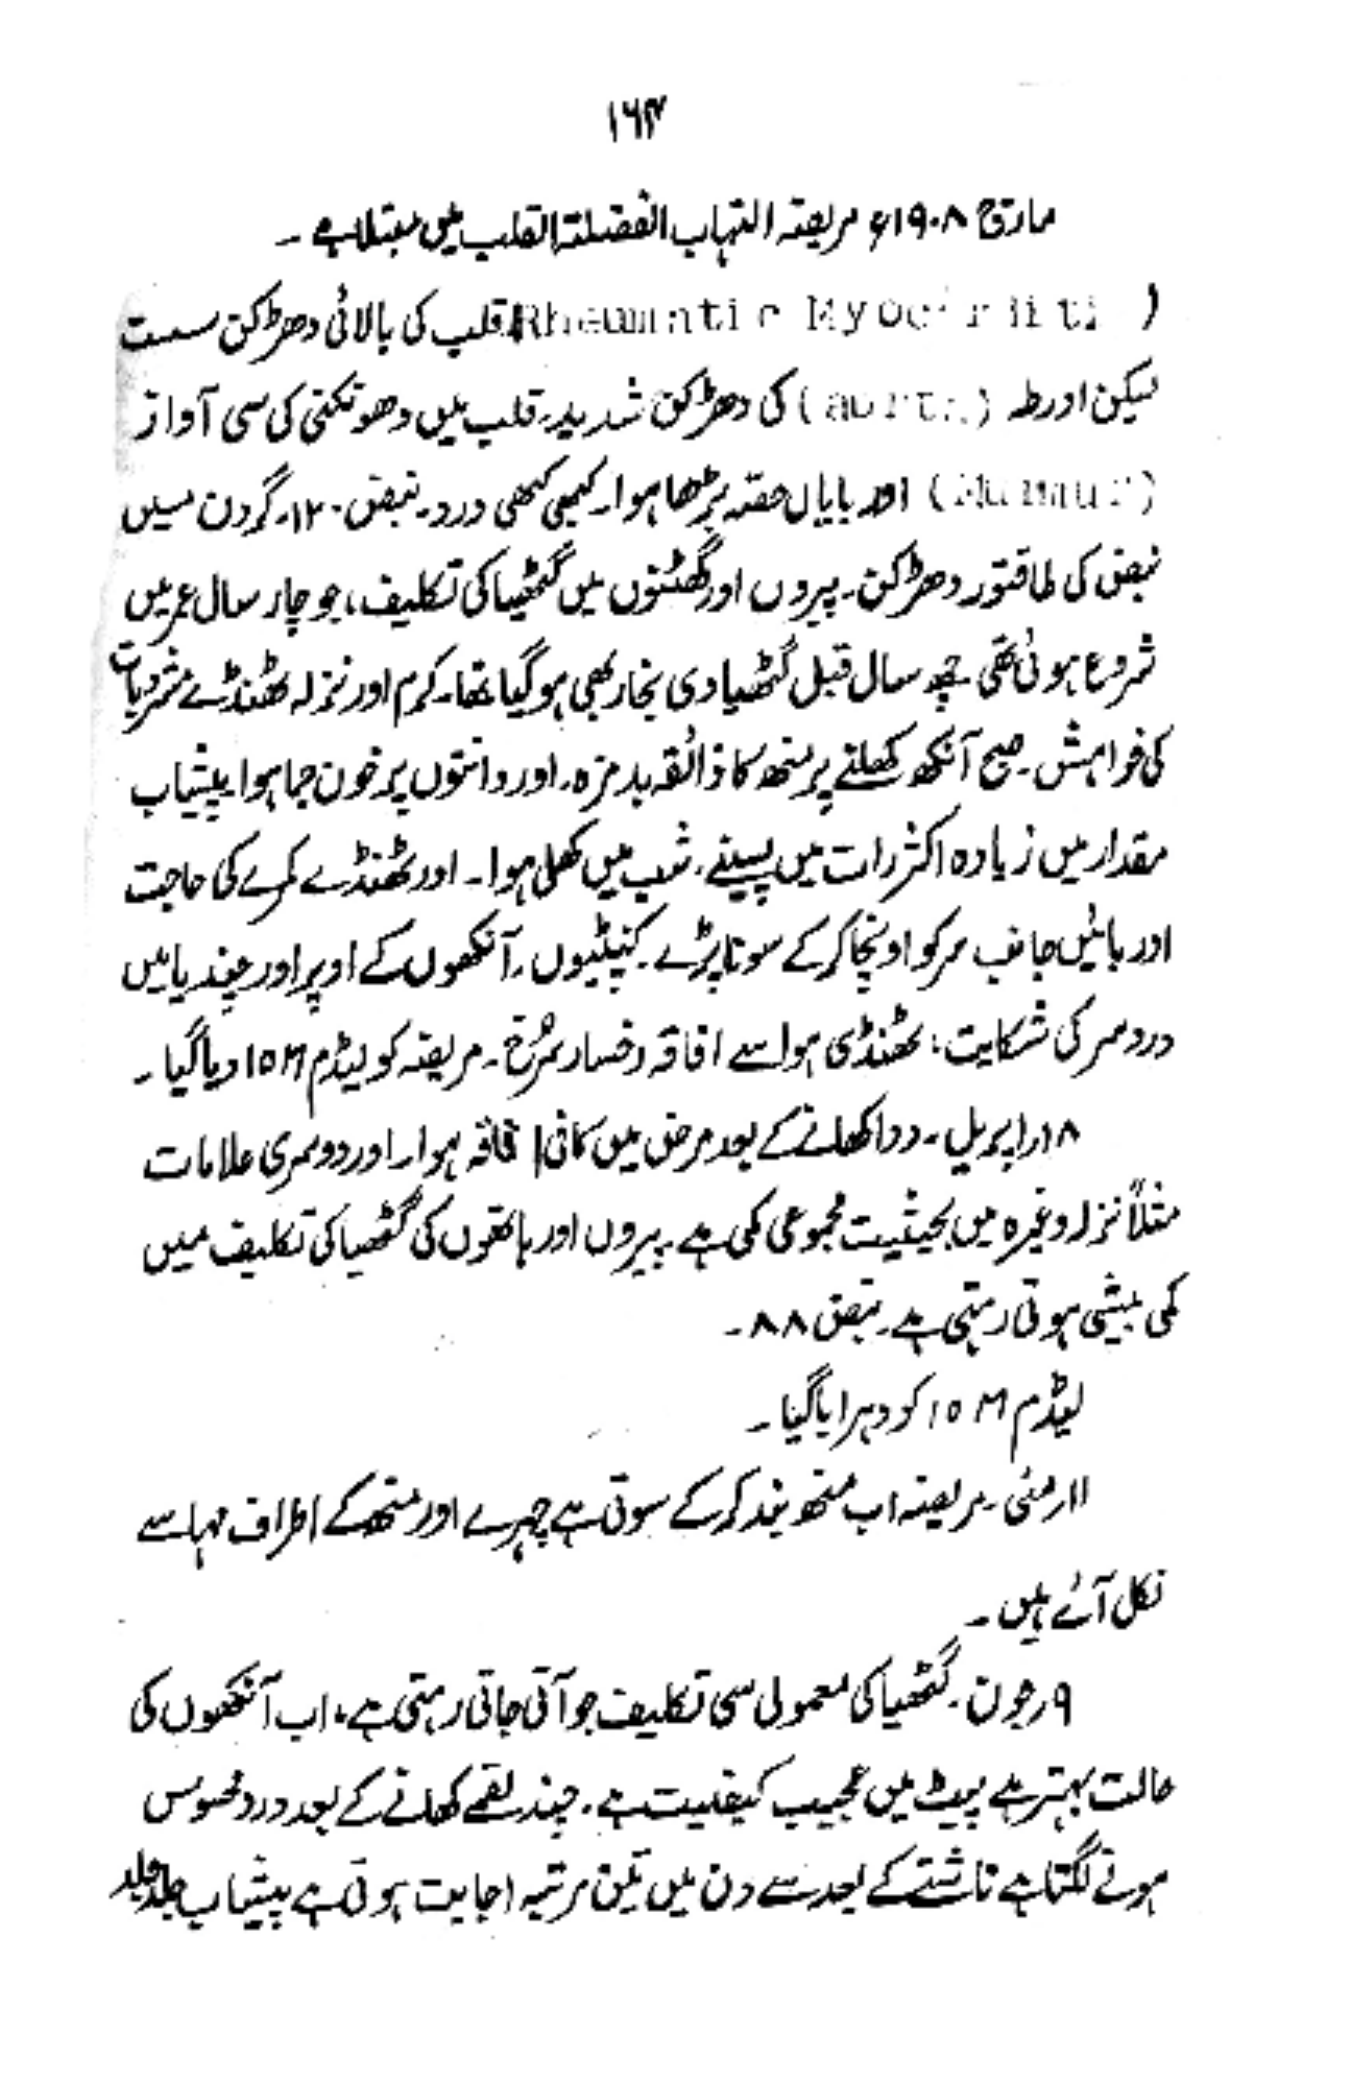 ۱۶۴
مارچ ۱۹۰۸ء مریضہ التہاب العضلۃ القلب میں مبتلا ہے ۔
( Rheumatic Myocarditi ) قلب کی بالائی دھڑکن سست
لیکن اورطہ (aorta) کی دھڑکن شدید۔ قلب میں دھونکنی کی سی آواز
(Murmur) اور بایاں حصہ بڑھا ہوا۔ کبھی کبھی درد۔ نبض ۱۲۰۔ گردن میں
نبض کی طاقتور دھڑکن۔ پیروں اور گھٹنوں میں گٹھیا کی تکلیف، جو چار سال عمر میں
شروع ہوئی تھی چھ سال قبل گٹھیاوی بخار بھی ہو گیا تھا۔ گرم اور نزلہ ٹھنڈے مشروبات
کی خواہش۔ صبح آنکھ کھلنے پر منھ کا ذائقہ بدمزہ۔ اور دانتوں پر خون جما ہوا پیشاب
مقدار میں زیادہ اکثر رات میں پسینے، شب میں کھلی ہوا۔ اور ٹھنڈے کمرے کی حاجت
اور بائیں جانب سر کو اونچا کر کے سونا پڑے۔ کنپٹیوں، آنکھوں کے اوپر اور چندیا میں
درد سر کی شکایت، ٹھنڈی ہوا سے افاقہ رخسار سُرخ۔ مریضہ کو لیڈم ۱۵M دیا گیا ۔
۱۸؍اپریل ۔ دوا کھانے کے بعد مرض میں کافی افاقہ ہوا۔ اور دوسری علامات
مثلاً نزلہ وغیرہ میں بحیثیت مجموعی کمی ہے۔ پیروں اور ہاتھوں کی گٹھیا کی تکلیف میں
کمی بیشی ہوتی رہتی ہے۔ نبض ۸۸ ۔
لیڈم ۱۵M کو دہرایا گیا ۔
۱۱؍مئی ۔ مریضہ اب منھ بند کر کے سوتی ہے چہرے اور منھ کے اطراف مہاسے
نکل آئے ہیں ۔
۹؍جون ۔ گٹھیا کی معمولی سی تکلیف جو آتی جاتی رہتی ہے، اب آنکھوں کی
حالت بہتر ہے پیٹ میں عجیب کیفیت ہے۔ چند لقمے کھانے کے بعد درد محسوس
ہونے لگتا ہے ناشتے کے بعد سے دن میں تین مرتبہ اجابت ہوتی ہے پیشاب جلد جلد